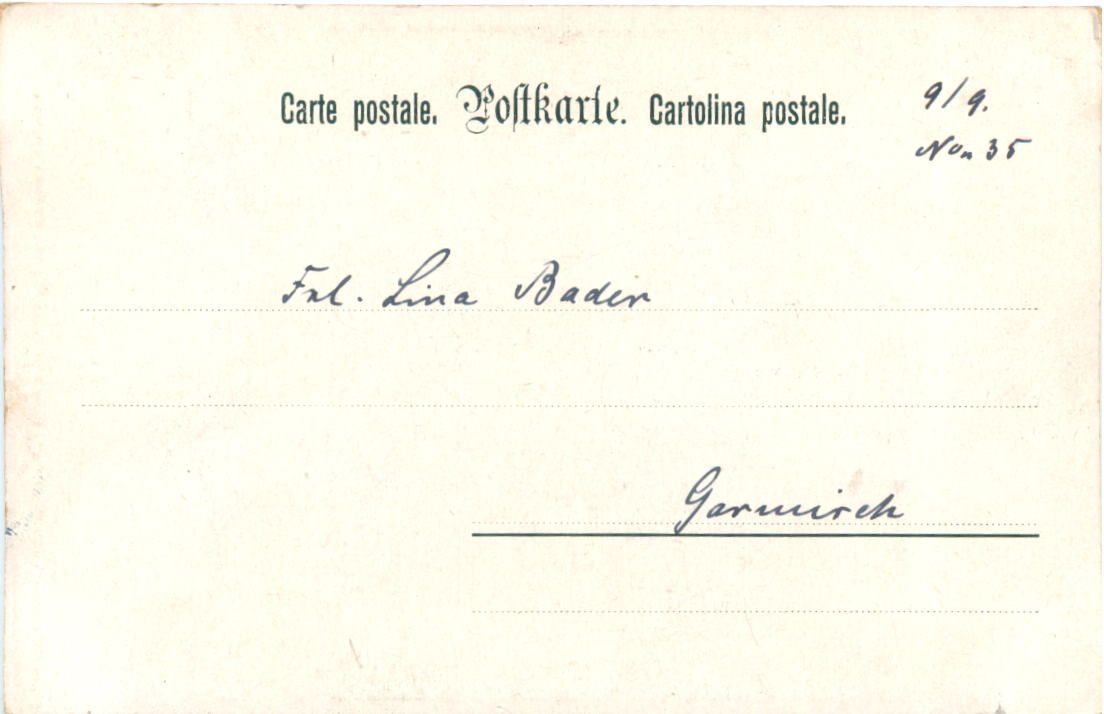 Carte postale. Postkarte. Cartolina postale.
9/9.
No. 35
Frl. Lina Bader
Garmisch